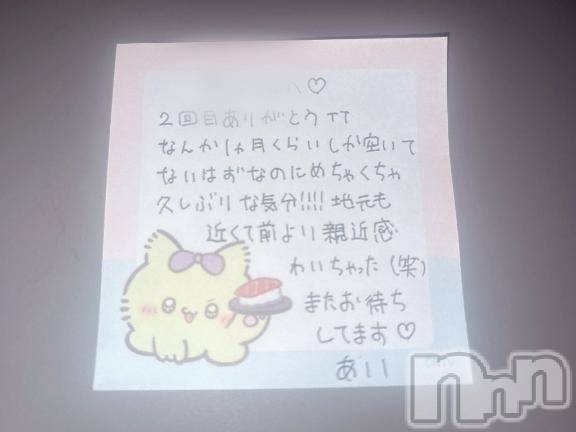 へ♡
2回目ありがとうTT
なんか1ヶ月くらいしか空いて
ないはずなのにめちゃくちゃ
久しぶりな気分!!!!地元も
近くて前より親近感
わいちゃった(笑)
またお待ち
してます♡
あい
nnn